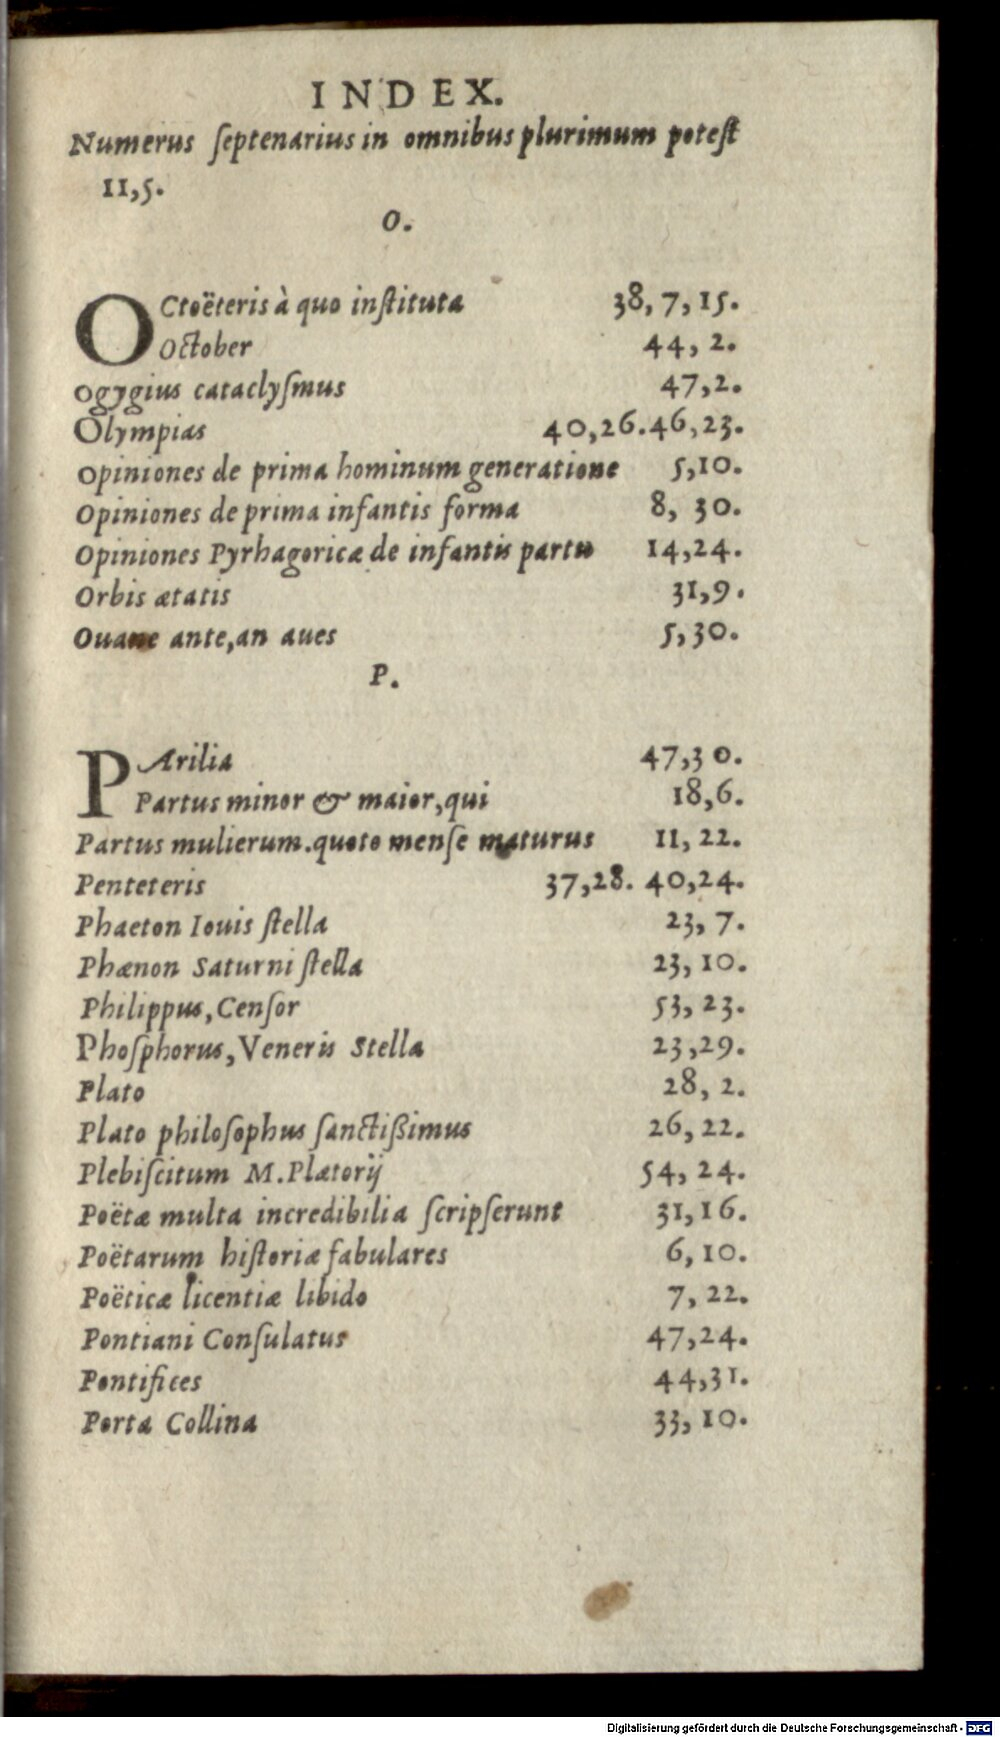 INDEX.
Numerus ſeptenarius in omnibus plurimum poteſt
11,5.
O.
OCtoëteris à quo inſtituta 38, 7, 15.
October 44, 2.
Ogygius cataclyſmus 47,2.
Olympias 40,26.46,23.
Opiniones de prima hominum generatione 5,10.
Opiniones de prima infantis forma 8, 30.
Opiniones Pyrhagoricæ de infantis partu 14,24.
Orbis ætatis 31,9.
Ouane ante,an aues 5,30.
P.
PArilia 47,30.
Partus minor & maior,qui 18,6.
Partus mulierum.quoto menſe maturus 11, 22.
Penteteris 37,28. 40,24.
Phaeton Iouis ſtella 23, 7.
Phænon Saturni ſtella 23, 10.
Philippus,Cenſor 53, 23.
Phoſphorus,Veneris Stella 23,29.
Plato 28, 2.
Plato philoſophus ſanctißimus 26, 22.
Plebiſcitum M.Plætorij 54, 24.
Poëtæ multa incredibilia ſcripſerunt 31,16.
Poëtarum hiſtoriæ fabulares 6, 10.
Poëticæ licentiæ libido 7, 22.
Pontiani Conſulatus 47,24.
Pontifices 44,31.
Porta Collina 33, 10.
Digitalisierung gefördert durch die Deutsche Forschungsgemeinschaft - DFG